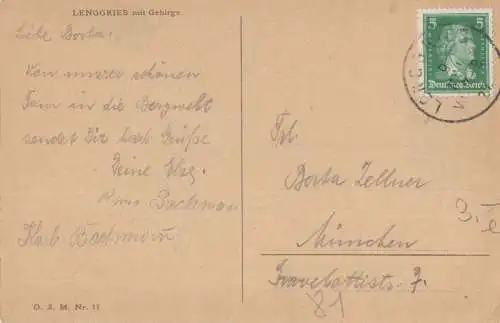 LENGGRIES mit Gebirge.
Liebe Berta!
Von unserer schönen
Tour in die Bergwelt
sendet Dir herzl. Grüße
Deine Else
Bachmann
Karl Bachmann
O. S. M. Nr. 11
5 5
Deutsches Reich
Frl.
Berta Zellner
München
7.
81
3.–